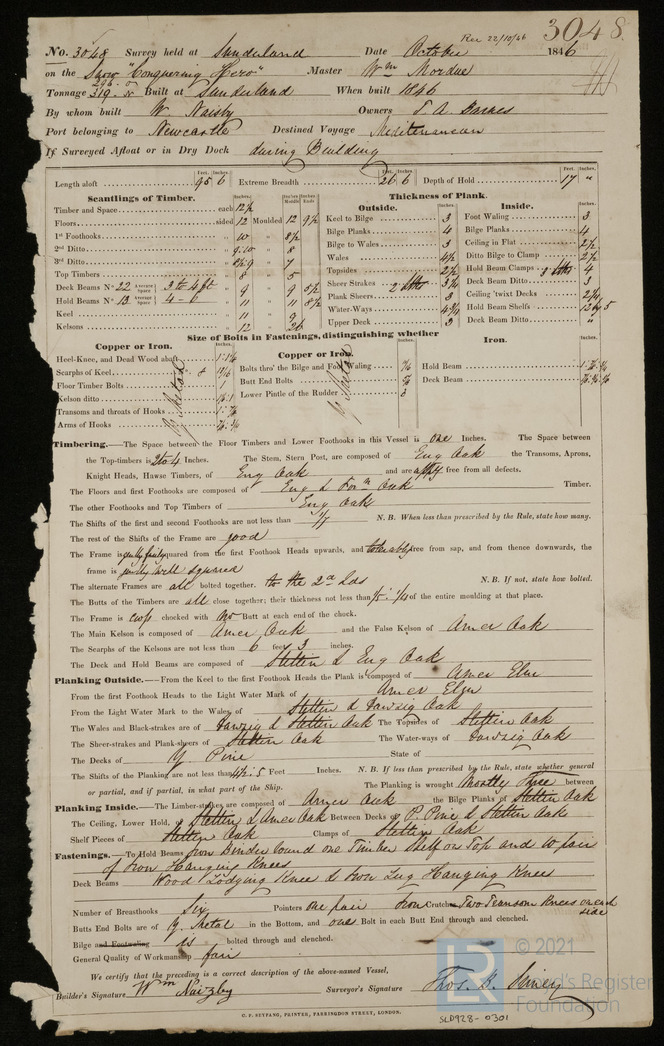 Rec 22/10/46 3048
No. 3048 Survey held at Sunderland Date October 1846
on the Snow "Conquering Hero" Master Wm Mordue
Tonnage 319 Built at Sunderland When built 1846
By whom built W Naisby Owners T. A. Barnes
Port belonging to Newcastle Destined Voyage Mediterranean
If Surveyed Afloat or in Dry Dock during Building
Length aloft 95 6 Extreme Breadth 26 6 Depth of Hold 17 "
Scantlings of Timber. Thickness of Plank.
Outside. Inside.
Timber and Space each 12½ Keel to Bilge 3 Foot Waling 3
Floors sided 12 Moulded 12 9½ Bilge Planks 4 Bilge Planks 4
1st Foothooks " 10 " 8½ Bilge to Wales 3 Ceiling in Flat 2½
2nd Ditto " 9.10 " 8 Wales 4½ Ditto Bilge to Clamp 2½
3rd Ditto " " 7 Topsides 2½ Hold Beam Clamps 4
Top Timbers " 8 " 5 Sheer Strakes 3¼ Deck Beam Ditto 3
Deck Beams No 22 Average Space 3 to 4 ft " 9 " 9 5½ Plank Sheers 3 Ceiling 'twixt Decks 2¼
Hold Beams No 13 Average Space 4-6 " 11 " 11 8½ Water-Ways 4¾ Hold Beam Shelfs 12 by 5
Keel " 11 " 9 Upper Deck 3 Deck Beam Ditto "
Kelsons " 12 " 26
Size of Bolts in Fastenings, distinguishing whether
Copper or Iron. Copper or Iron. Iron.
Heel-Knee, and Dead Wood abaft
Scarphs of Keel Bolts thro' the Bilge and Foot Waling Hold Beam
Floor Timber Bolts 1 Butt End Bolts Deck Beam
Kelson ditto Lower Pintle of the Rudder 3
Transoms and throats of Hooks
Arms of Hooks
Y. Metal Y. Metal
Timbering.—The Space between the Floor Timbers and Lower Foothooks in this Vessel is one Inches. The Space between
the Top-timbers is 2 to 4 Inches. The Stem, Stern Post, are composed of Eng Oak the Transoms, Aprons,
Knight Heads, Hawse Timbers, of Eng Oak and are free from all defects.
The Floors and first Foothooks are composed of Eng & Forn Oak Timber.
The other Foothooks and Top Timbers of Eng Oak
The Shifts of the first and second Foothooks are not less than 1/7 N. B. When less than prescribed by the Rule, state how many.
The rest of the Shifts of the Frame are good
The Frame is squared from the first Foothook Heads upwards, and tolerably free from sap, and from thence downwards, the
frame is well squared
The alternate Frames are all bolted together. to the 2d N. B. If not, state how bolted.
The Butts of the Timbers are all close together; their thickness not less than of the entire moulding at that place.
The Frame is chocked with Butt at each end of the chock.
The Main Kelson is composed of Amer Oak and the False Kelson of Amer Oak
The Scarphs of the Kelsons are not less than 6 feet 3 inches.
The Deck and Hold Beams are composed of Stettin & Eng Oak
Planking Outside.—From the Keel to the first Foothook Heads the Plank is composed of Amer Elm
From the first Foothook Heads to the Light Water Mark of Amer Elm
From the Light Water Mark to the Wales of Stettin & Danzig Oak
The Wales and Black-strakes are of Danzig & Stettin Oak The Topsides of Stettin Oak
The Sheer-strakes and Plank-sheers of Stettin Oak The Water-ways of Danzig Oak
The Decks of Y. Pine State of
The Shifts of the Planking are not less than 4½.5 Feet Inches. N. B. If less than prescribed by the Rule, state whether general
or partial, and if partial, in what part of the Ship. The Planking is wrought Mostly Three between
Planking Inside.—The Limber-strakes are composed of Amer Oak the Bilge Planks of Stettin Oak
The Ceiling, Lower Hold, of Stettin & Amer Oak Between Decks of P. Pine & Stettin Oak
Shelf Pieces of Stettin Oak Clamps of Stettin Oak
Fastenings.—To Hold Beams Iron Binder bound one Timber Shelf on Top and 10 pair
of Iron Hanging Knees
Deck Beams Wood Lodging Knee & Iron Lug Hanging Knees
Number of Breasthooks Six Pointers one pair Iron Crutches Two Transom Knees on each side
Butts End Bolts are of Y. Metal in the Bottom, and one Bolt in each Butt End through and clenched.
Bilge and Footwaling is bolted through and clenched.
General Quality of Workmanship fair
We certify that the preceding is a correct description of the above-named Vessel,
Builder's Signature Wm Naizby Surveyor's Signature
C. F. SEYFANG, PRINTER, FARRINGDON STREET, LONDON.
SLD928-0301
© 2021
LR Lloyd's Register
Foundation